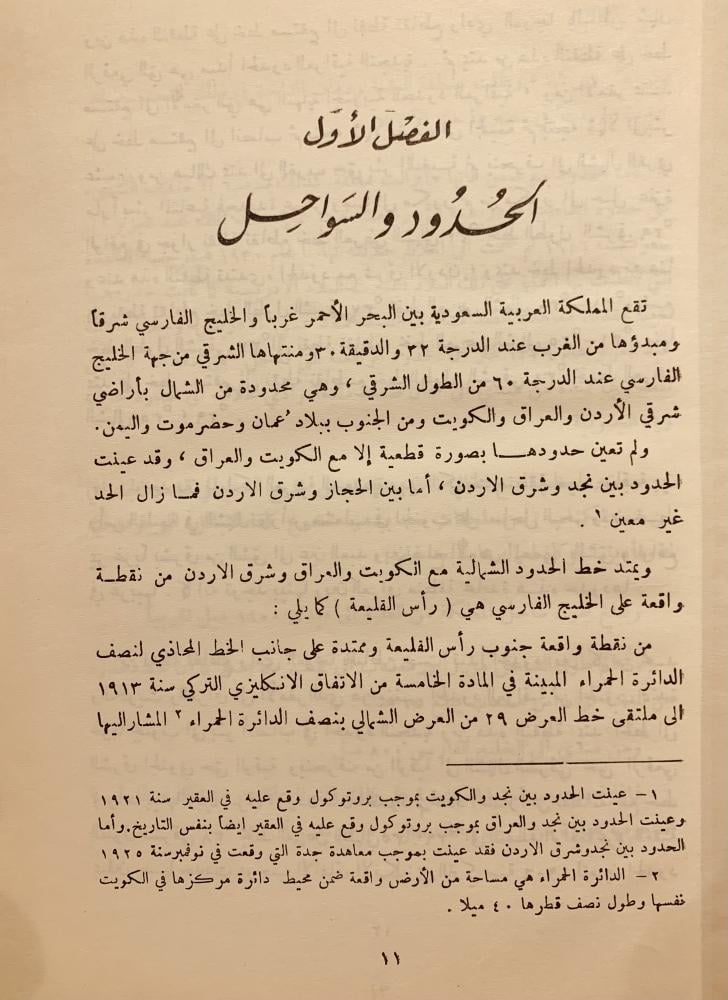 الفصل الأول
الحدود والسواحل
تقع المملكة العربية السعودية بين البحر الأحمر غرباً والخليج الفارسي شرقاً
ومبدؤها من الغرب عند الدرجة ٣٢ والدقيقة ٣٠ ومنتهاها الشرقي من جهة الخليج
الفارسي عند الدرجة ٦٠ من الطول الشرقي ، وهي محدودة من الشمال بأراضي
شرقي الأردن والعراق والكويت ومن الجنوب ببلاد عُمان وحضرموت واليمن.
ولم تعين حدودها بصورة قطعية إلا مع الكويت والعراق ، وقد عينت
الحدود بين نجد وشرق الاردن ، أما بين الحجاز وشرق الاردن فما زال الحد
غير معين ١ .
ويمتد خط الحدود الشمالية مع الكويت والعراق وشرق الاردن من نقطة
واقعة على الخليج الفارسي هي ( رأس القليعة ) كما يلي :
من نقطة واقعة جنوب رأس القليعة وممتدة على جانب الخط المحاذي لنصف
الدائرة الحمراء المبينة في المادة الخامسة من الاتفاق الانكليزي التركي سنة ١٩١٣
الى ملتقى خط العرض ٢٩ من العرض الشمالي بنصف الدائرة الحمراء ٢ المشار اليها
١ – عينت الحدود بين نجد والكويت بموجب بروتوكول وقع عليه في العقير سنة ١٩٢١
وعينت الحدود بين نجد والعراق بموجب بروتوكول وقع عليه في العقير ايضاً بنفس التاريخ. وأما
الحدود بين نجد وشرق الاردن فقد عينت بموجب معاهدة جدة التي وقعت في نوفمبر سنة ١٩٢٥
٢ – الدائرة الحمراء هي مساحة من الأرض واقعة ضمن محيط دائرة مركزها في الكويت
نفسها وطول نصف قطرها ٤٠ ميلا .
١١